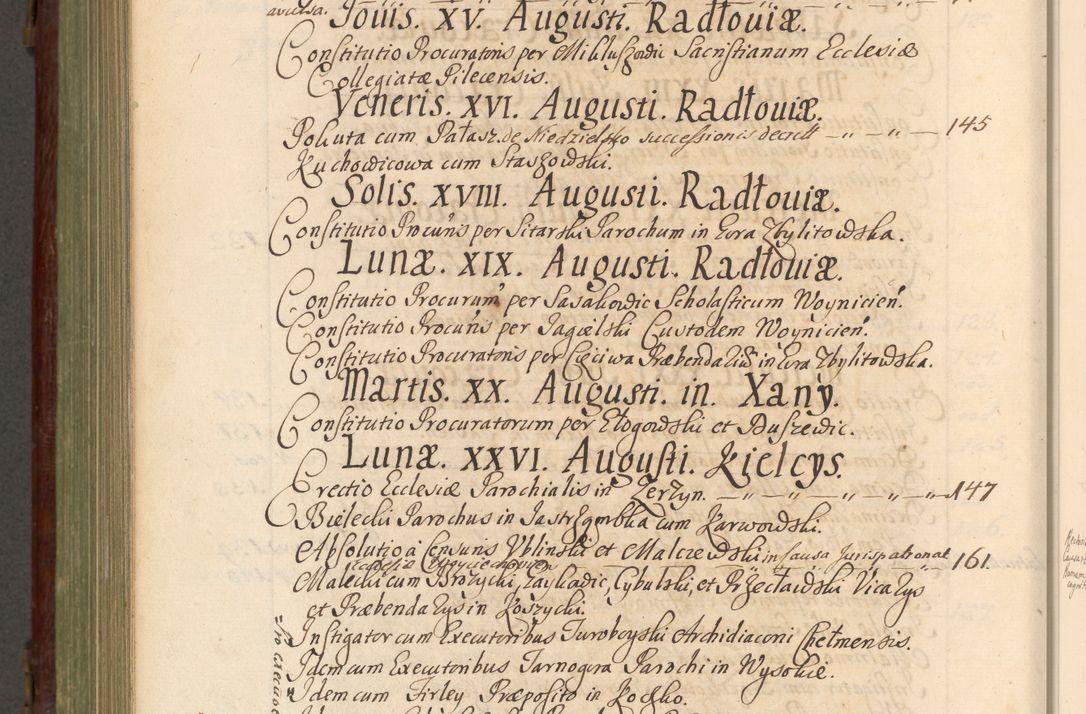 aversa.
Jouis. XV. Augusti. Radłouiæ.
Constitutio Procuratoris per Mikluszowic Sacristianum Ecclesiæ
Collegiatæ Pilecensis.
Veneris. XVI. Augusti. Radłouiæ.
Pokuta cum Pałasz. de Niedzielsko successionis decrett — " — " — 145
Kuchowicowa cum Staszowski.
Solis. XVIII. Augusti. Radłouiæ.
Constitutio Procuris per Sitarski Parochum in Gora Zbylitowska.
Lunæ. XIX. Augusti. Radłouiæ.
Constitutio Procurum per Sasakowic Scholasticum Woynicien.
Constitutio Procuris per Jagielski Custodem Woynicien.
Constitutio Procuratoris per Cięciwa Præbendariū in Gora Zbylitowska.
Martis. XX. Augusti. in. Xany.
Constitutio Procuratorum per Głogowski et Duszewic.
Lunæ. XXVI. Augusti. Kielcys.
Erectio Ecclesiæ Parochialis in Zerzyn. — " — " — " — " — " — 147
Bielecki Parochus in Jastrzombka cum Karwowski.
Absolutio a Censuris Vblinski et Malczewski in causa Jurispatronat — 161
Ecclesiæ
Malecki cum Brożycki, Zaykowic, Cybulski, et Przecławski Vicarys
et Præbendarys in Koszycki.
Instigator cum Executoribus Turoboyski Archidiaconi Chełmensis.
Idem cum Executoribus Tarnogora Parochi in Wysokie.
Idem cum Firley Præposito in Kocko.